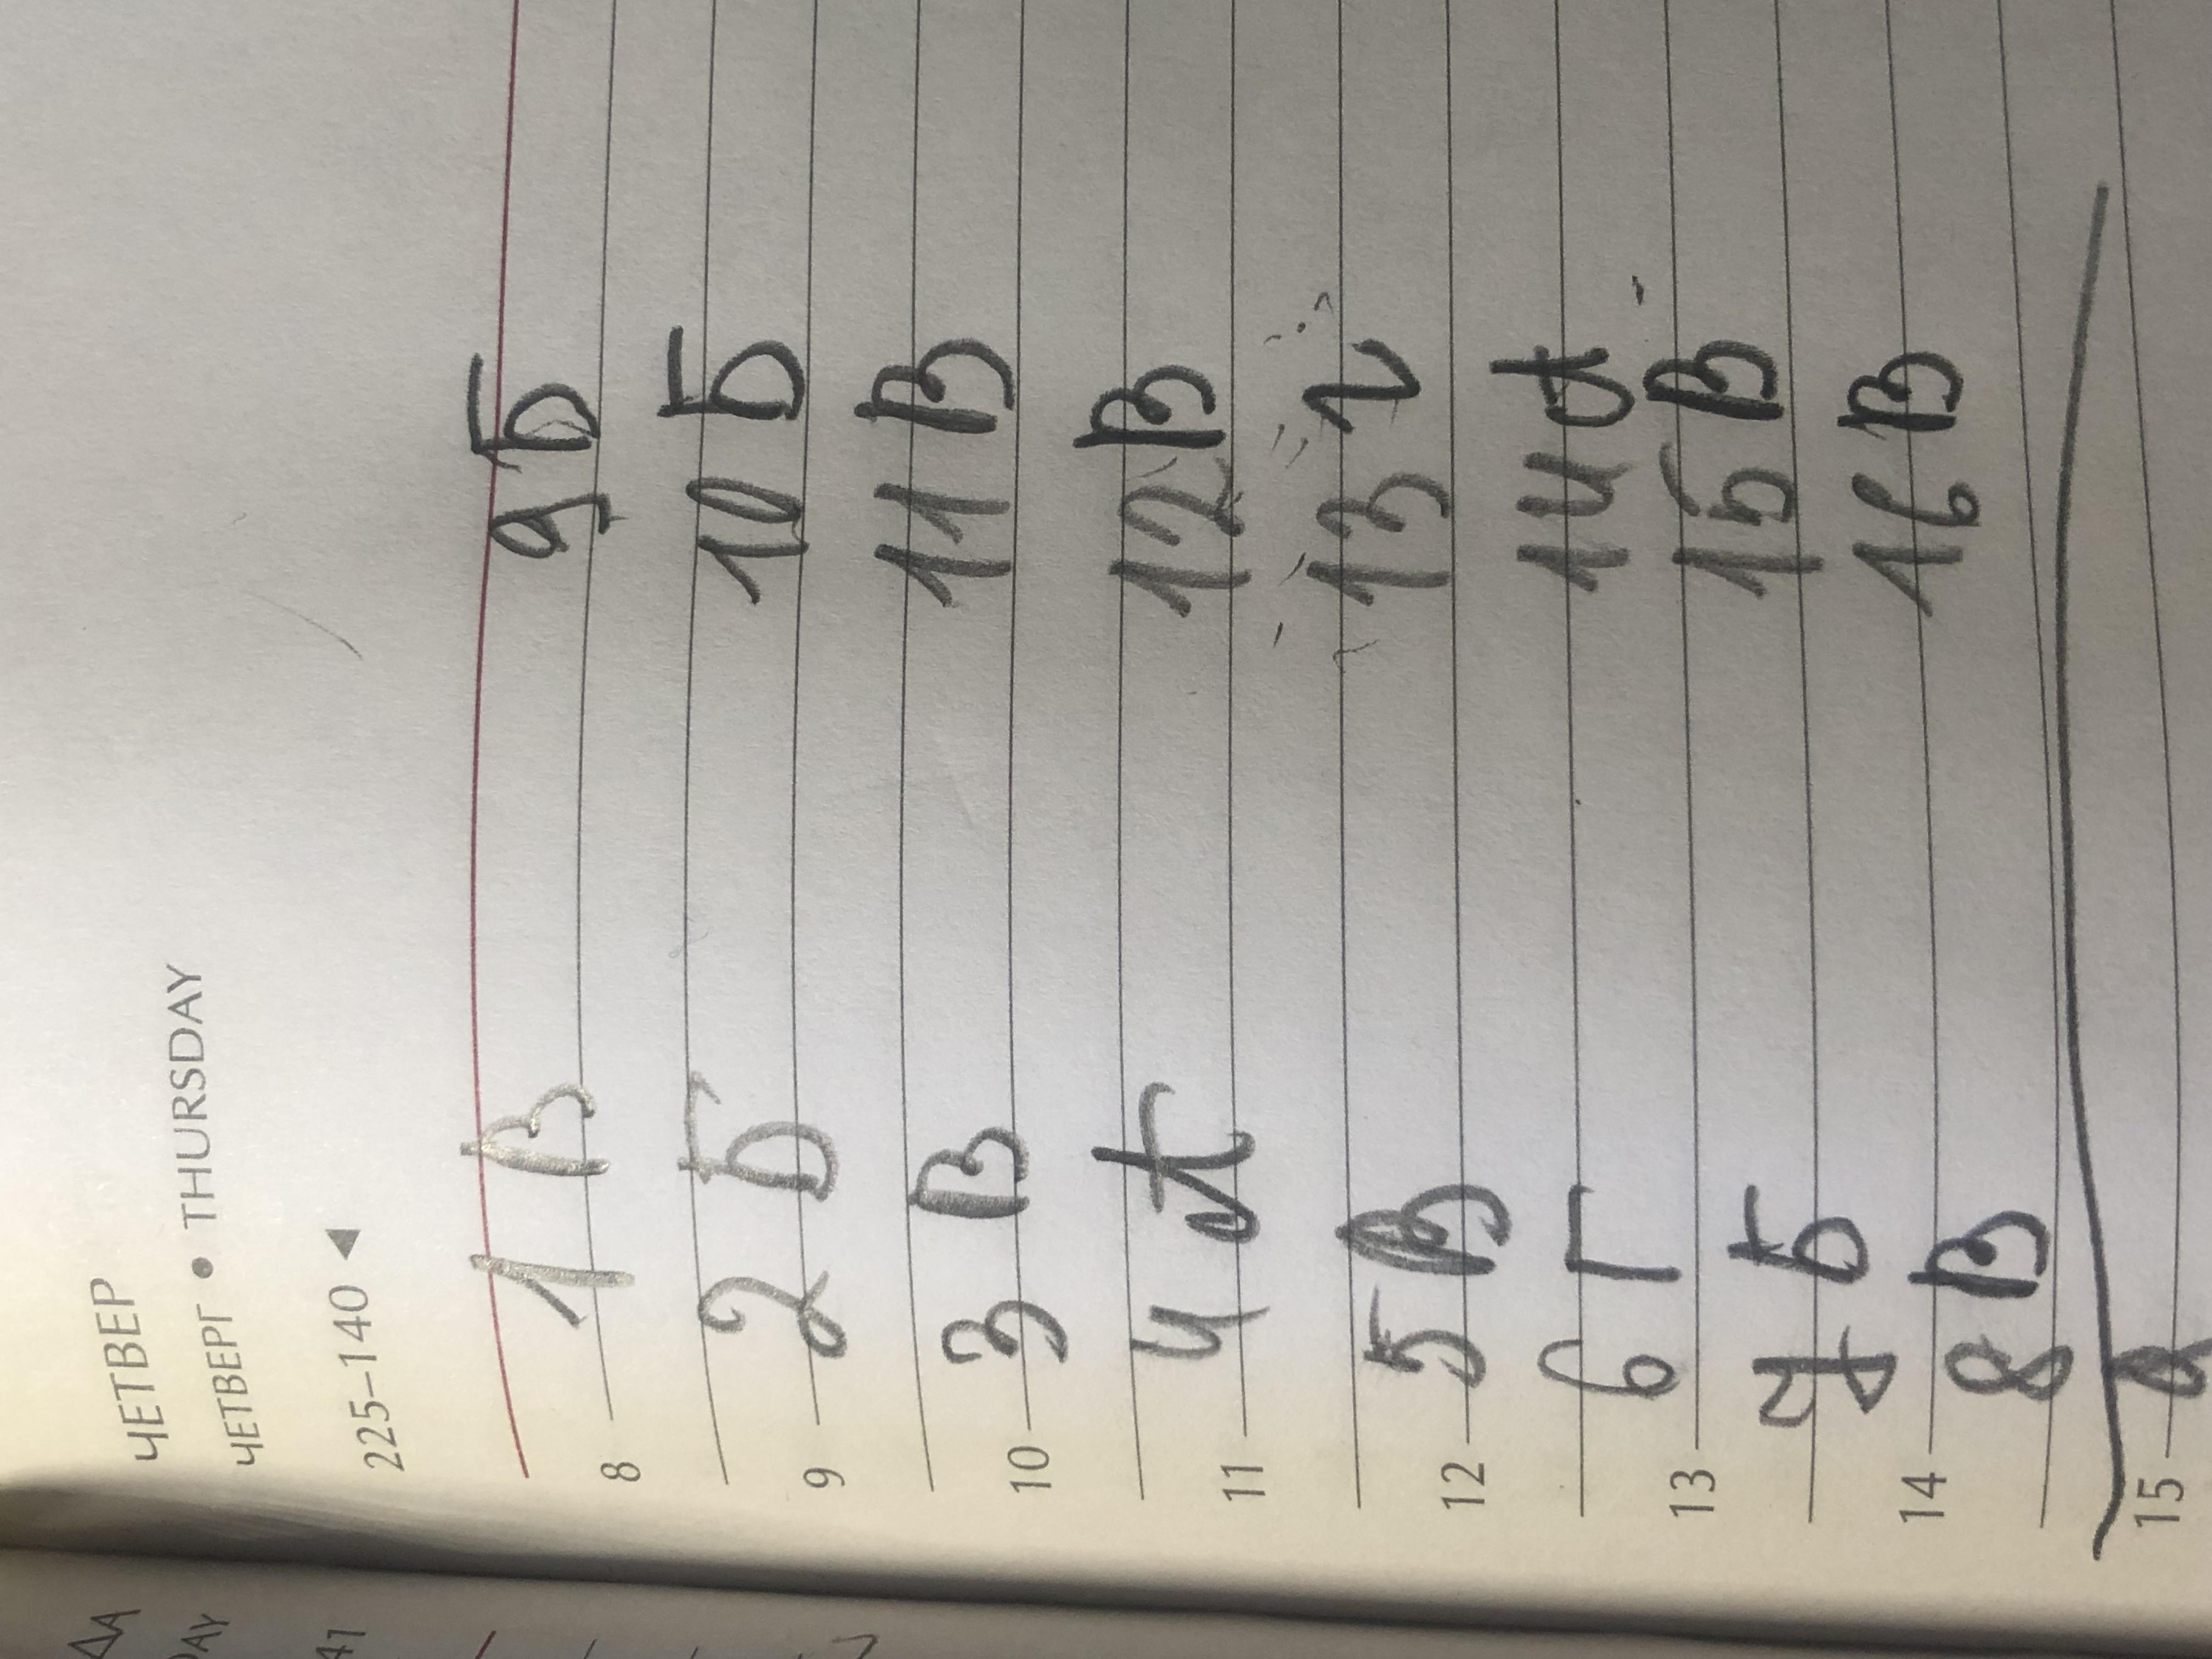 ЧЕТВЕР
ЧЕТВЕРГ • THURSDAY
225–140 ◄
1 В 9 Б
8
2 Б 10 Б
9
3 В 11 В
10
4 12 В
11
5 В 13 г
12
6 Г 14
13
7 Б 15 В
14
8 В 16 В
15
ДА
DAY
41